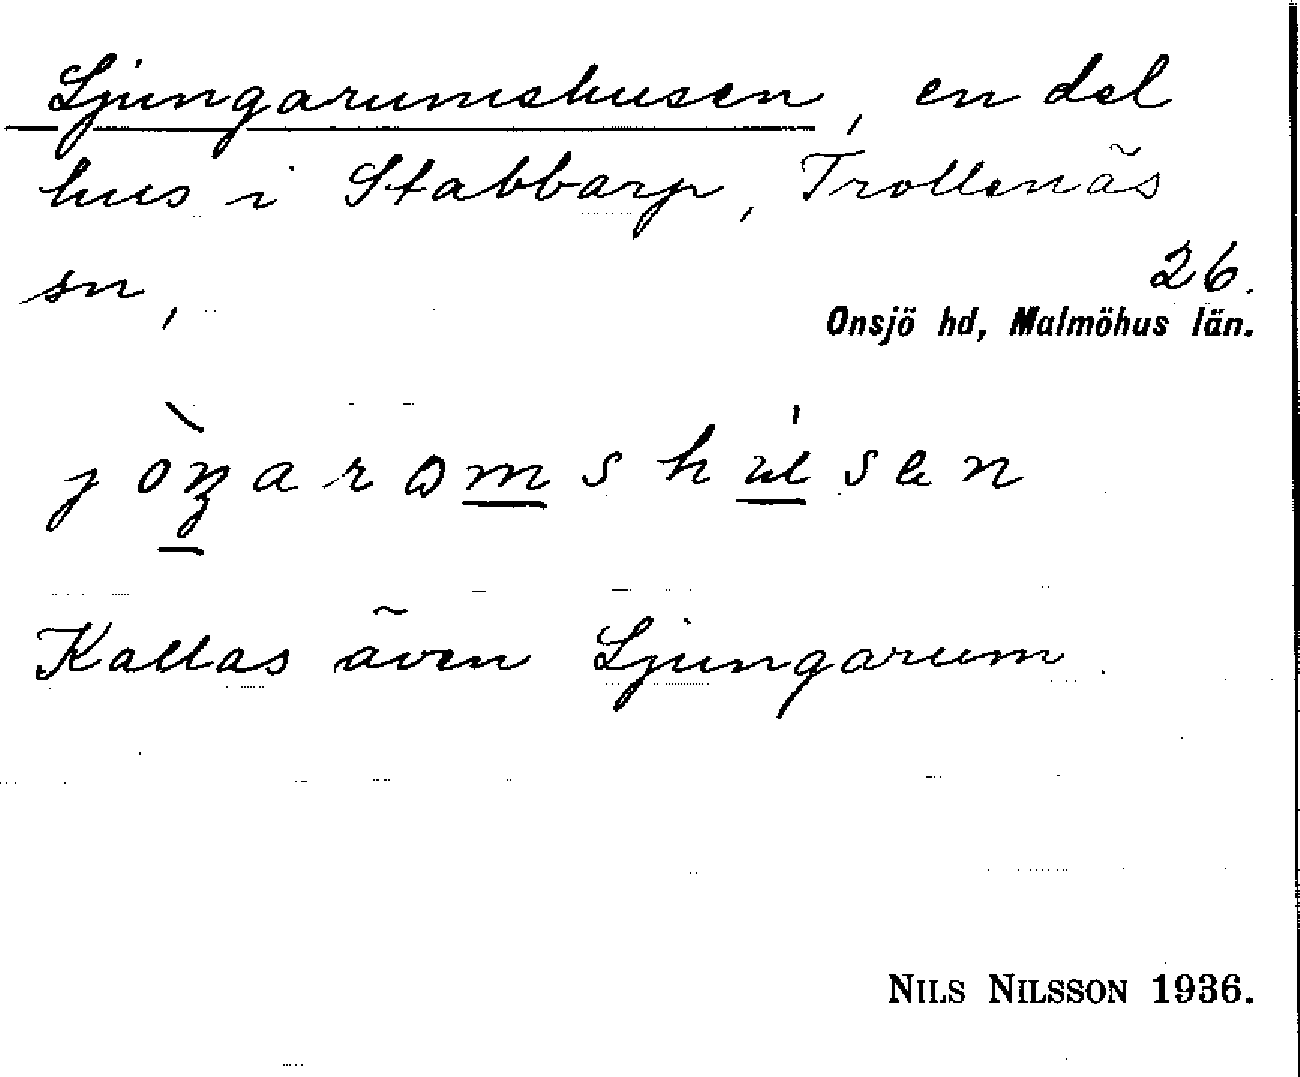 Ljungarumshusen, en del
hus i Stabbarp, Trollenäs
sn,
26.
Onsjö hd, Malmöhus län.
jòŋaromshúsen
Kallas även Ljungarum.
NILS NILSSON 1936.